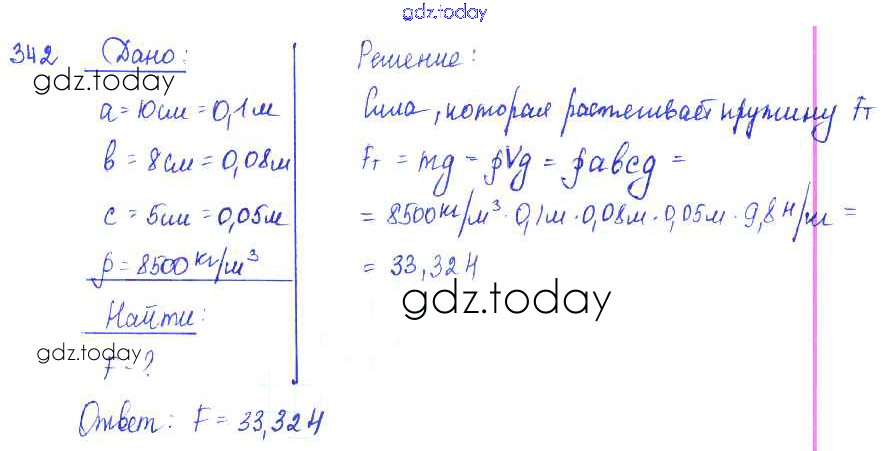 gdz.today
342 Дано:
gdz.today
a = 10 см = 0,1 м
b = 8 см = 0,08 м
c = 5 см = 0,05 м
ρ = 8500 кг/м³
Найти:
gdz.today
F - ?
Решение:
Сила, которая растягивает пружину Fт
Fт = mg = ρVg = ρabcg =
= 8500 кг/м³ · 0,1 м · 0,08 м · 0,05 м · 9,8 Н/м =
= 33,32 Н
gdz.today
Ответ: F = 33,32 Н